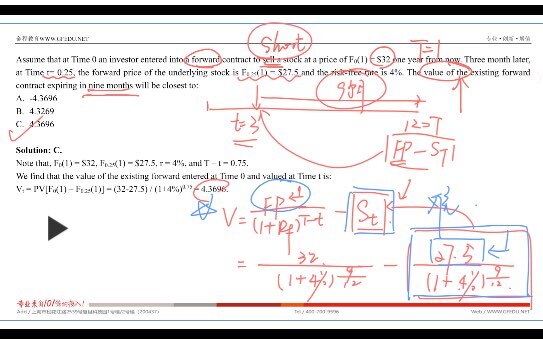 金程教育WWW.GFEDU.NET
专业·创新·增值
Short
T=1
Assume that at Time 0 an investor entered into a forward contract to sell a stock at a price of F₀(1) = $32 one year from now. Three month later,
at Time t= 0.25, the forward price of the underlying stock is F₀.₂₅(1) = $27.5 and the risk-free rate is 4%. The value of the existing forward
contract expiring in nine months will be closest to:
A. -4.3696
B. 4.3269
C. 4.3696
t=3
12=T
FP - ST
Solution: C.
Note that, F₀(1) = $32, F₀.₂₅(1) = $27.5, r = 4%, and T − t = 0.75.
We find that the value of the existing forward entered and valued at Time t is:
Vₜ = PV[F₀(1) − F₀.₂₅(1)] = (32-27.5) / (1+4%)⁰·⁷⁵ = 4.3696.
V = FP / (1+Rf)^T-t - St
= 32 / (1+4%)^9/12 - 27.5 / (1+4%)^9/12
Tel / 400-700-9596
Web / WWW.GFEDU.NET